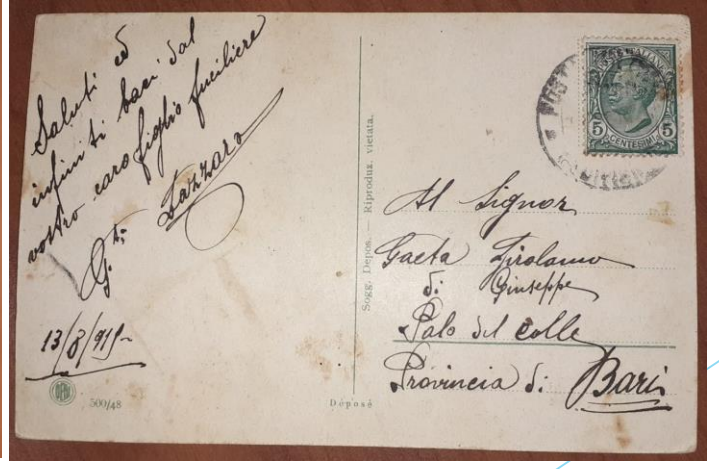 Saluti ed
infiniti baci dal
vostro caro figlio fuciliere
G.ta Lazzaro
13/8/915-
500/48
Déposé
Sogg. Depos. — Riproduz. vietata.
POSTE ITALIANE
5 CENTESIMI 5
POSTA
Al Signor
Gaeta Girolamo
di Giuseppe
Palo del Colle
Provincia di Bari